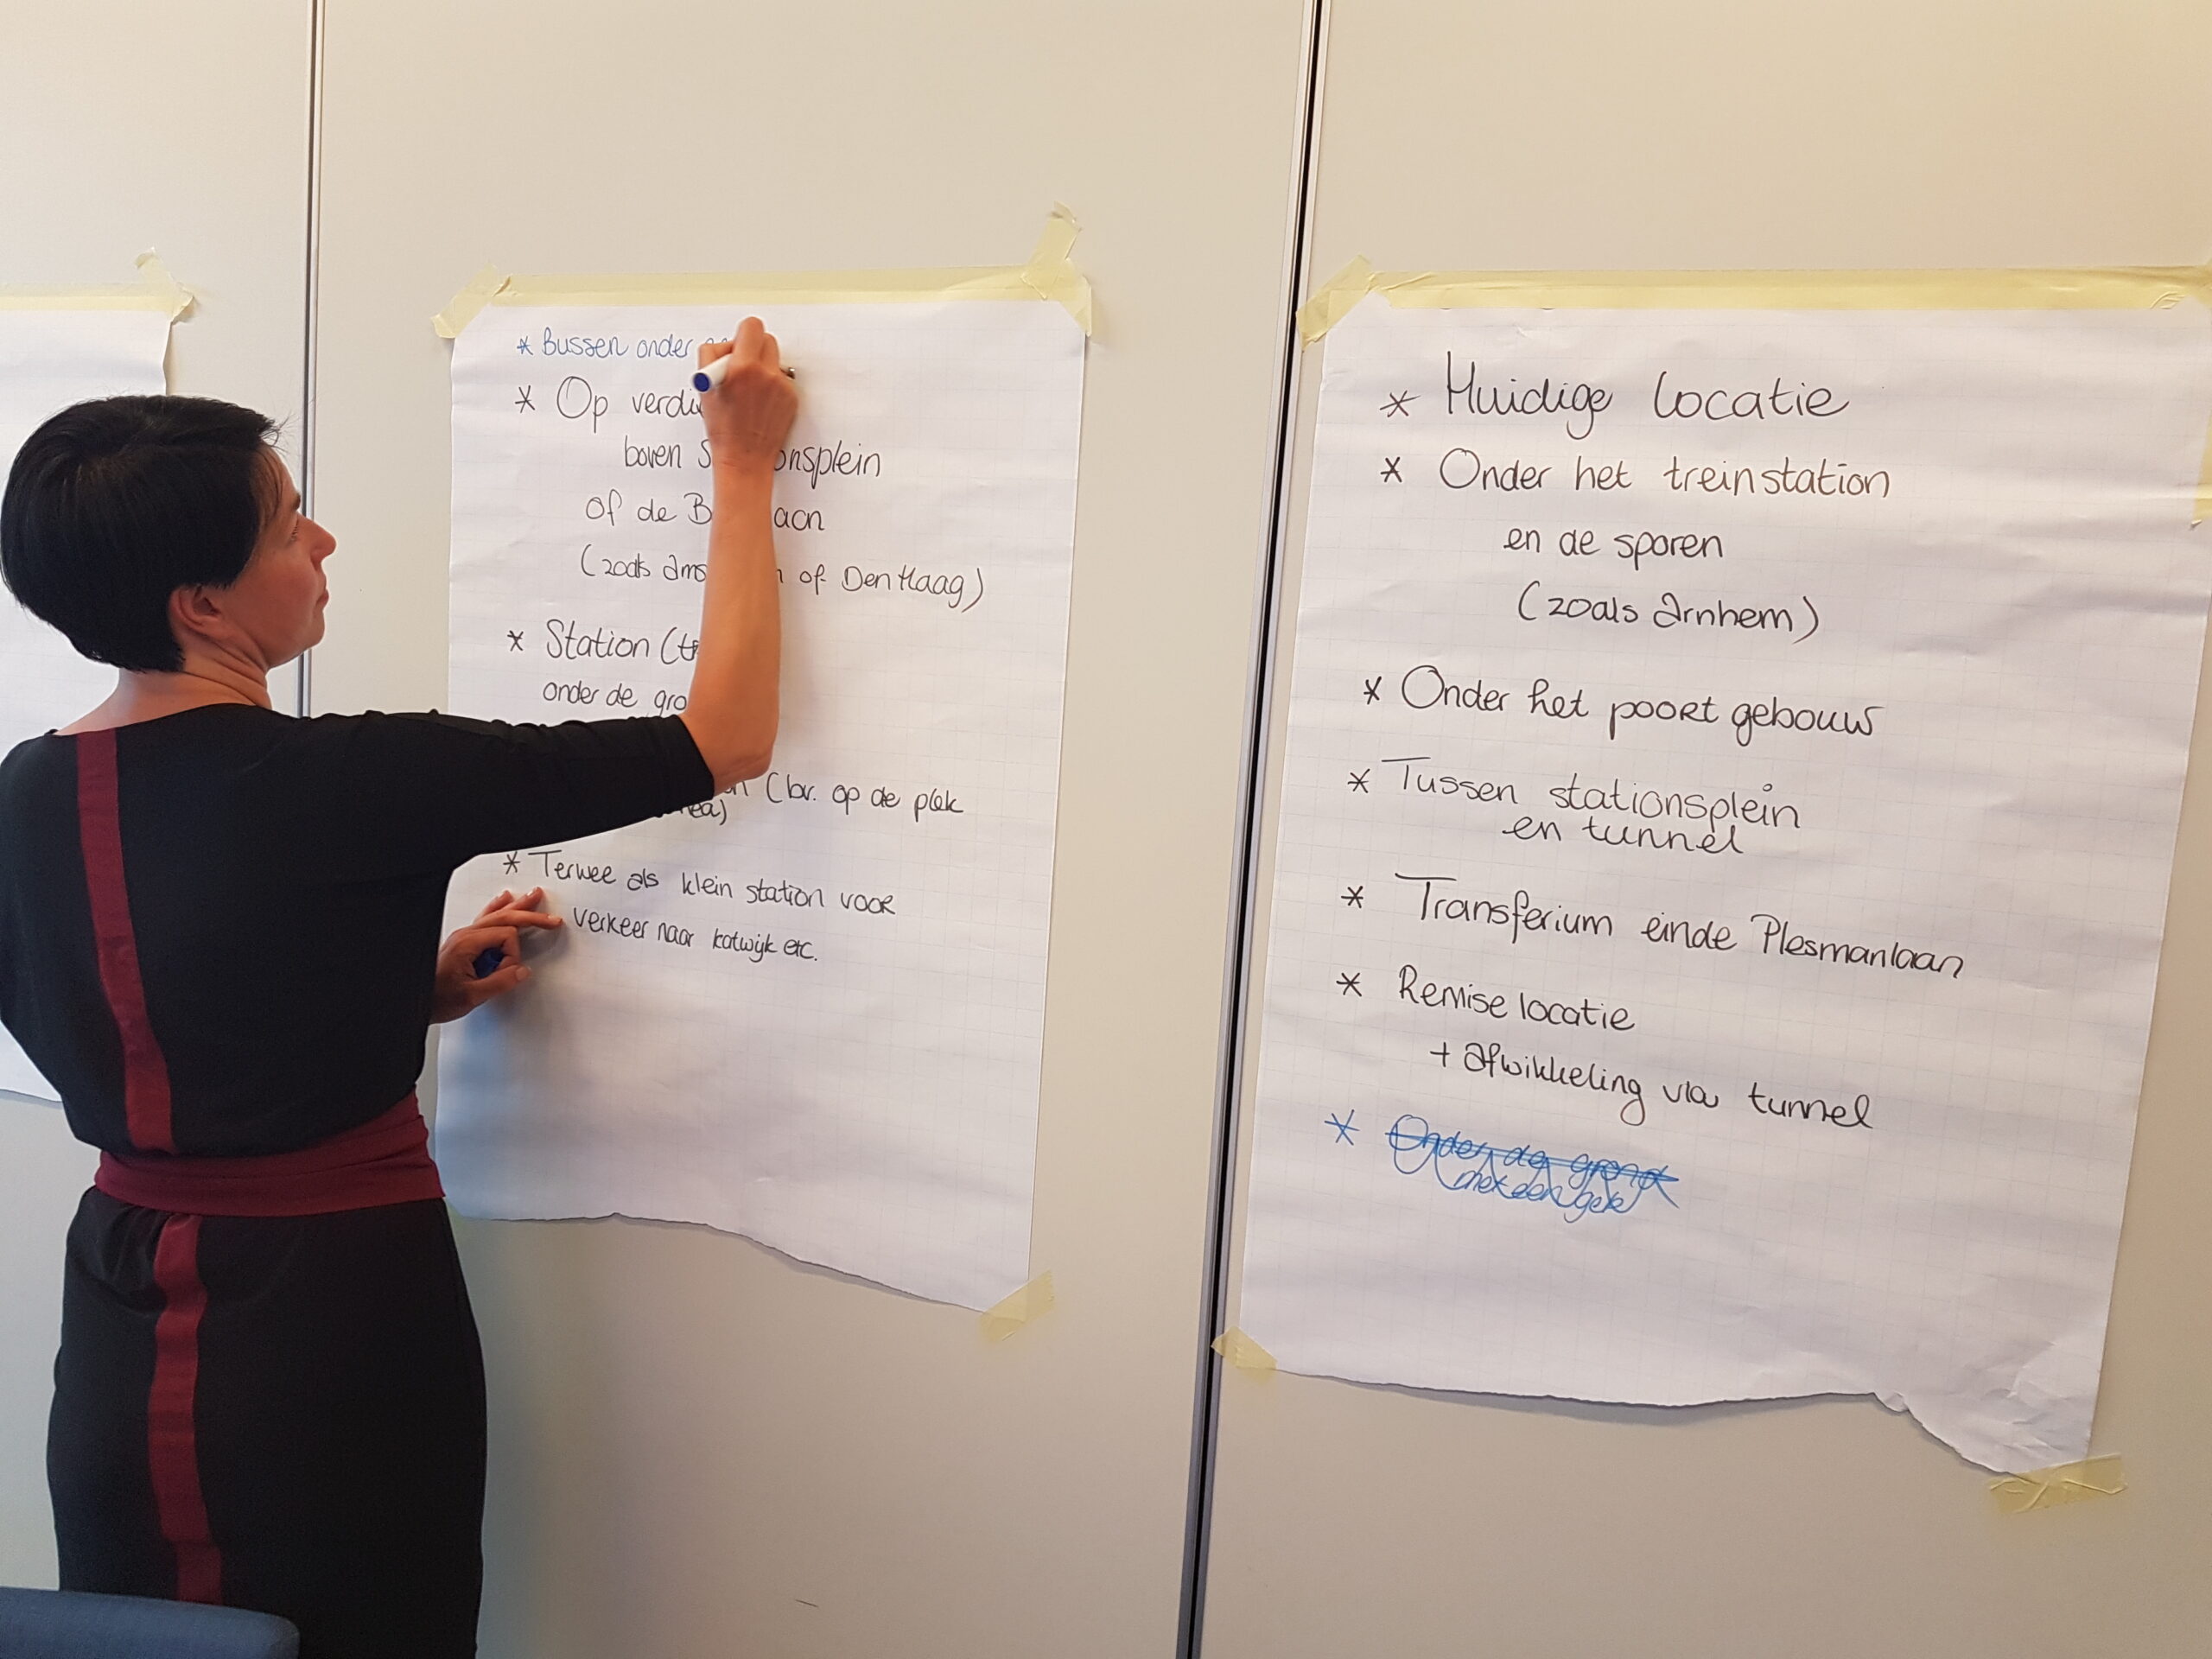 * Bussen onder
* Op
boven
of de
(zoals of Den Haag)
* Station
onder de
(bv. op de plek
* Terwee als klein station voor
verkeer naar katwijk etc.
* Huidige locatie
* Onder het treinstation
en de sporen
(zoals Arnhem)
* Onder het poort gebouw
* Tussen stationsplein
en tunnel
* Transferium einde Plesmanlaan
* Remise locatie
+ afwikkeling via tunnel
* Onder de grond
met een